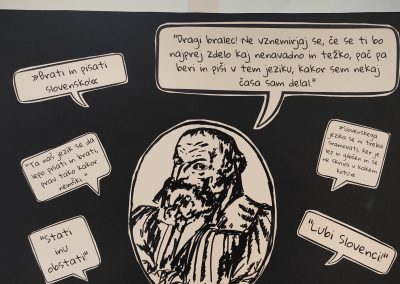 "Dragi bralec! Ne vznemirjaj se, če se ti bo
najprej zdelo kaj nenavadno in težko, pač pa
beri in piši v tem jeziku, kakor sem nekaj
časa sam delal."
»Brati in pisati
slovensko«
"Ta naš jezik se da
lepo pisati in brati,
prav tako kakor
nemški."
»Slovenskega
jezika se ni treba
sramovati, ker je
lep in gibčen in se
ne skriva v kakem
kotu«
"Stati
inu
obstati!"
"Lubi Slovenci!"